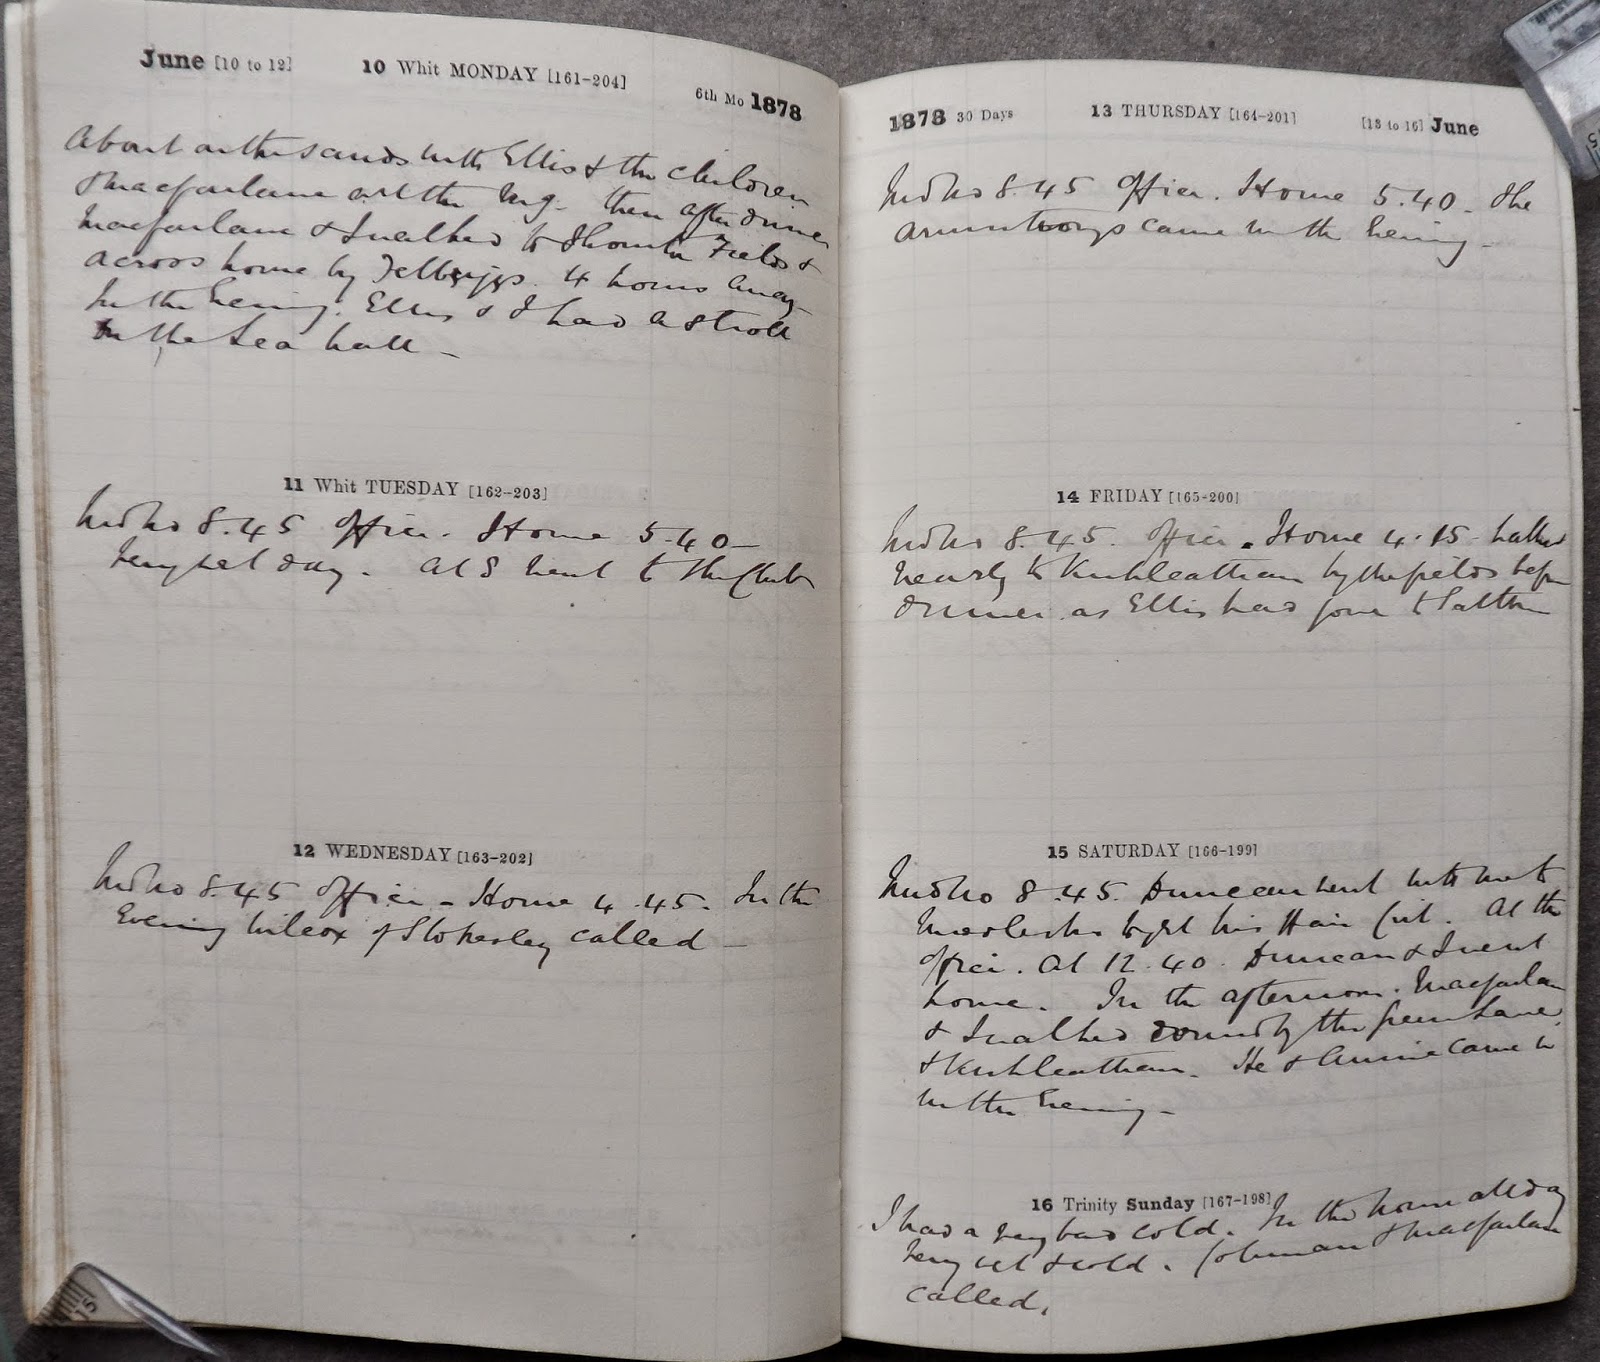 June [10 to 12] 10 Whit MONDAY [161-204] 6th Mo 1878
About on the sands with Ellis & the children
& Macfarlane all the mg. then after dinner
Macfarlane & I walked to Fields &
across home by 4 hours away
In the Evening. Ellis & I had a stroll
in the Sea
11 Whit TUESDAY [162-203]
8.45 office. Home 5.40 –
Very wet day. At 8 went to the Club
12 WEDNESDAY [163-202]
8.45 office – Home 4.45. In the
Evening Wilcox of Stokesley called –
1878 30 Days 13 THURSDAY [164-201] [13 to 16] June
8.45 office. Home 5.40 – The
Armstrongs came in the Evening –
14 FRIDAY [165-200]
8.45. office. Home 4.15. Walked
nearly to Kirkleatham by the fields before
dinner as Ellis had gone to
15 SATURDAY [166-199]
8.45. Duncan went with me to
to get his Hair Cut. At the
office. At 12.40. Duncan & I went
home. In the afternoon. Macfarlane
& I walked round by the Green Lane
& Kirkleatham. He & Annie came in
in the Evening –
16 Trinity Sunday [167-198]
I had a very bad cold. In the house all day
Very wet & cold. & Macfarlane
called.